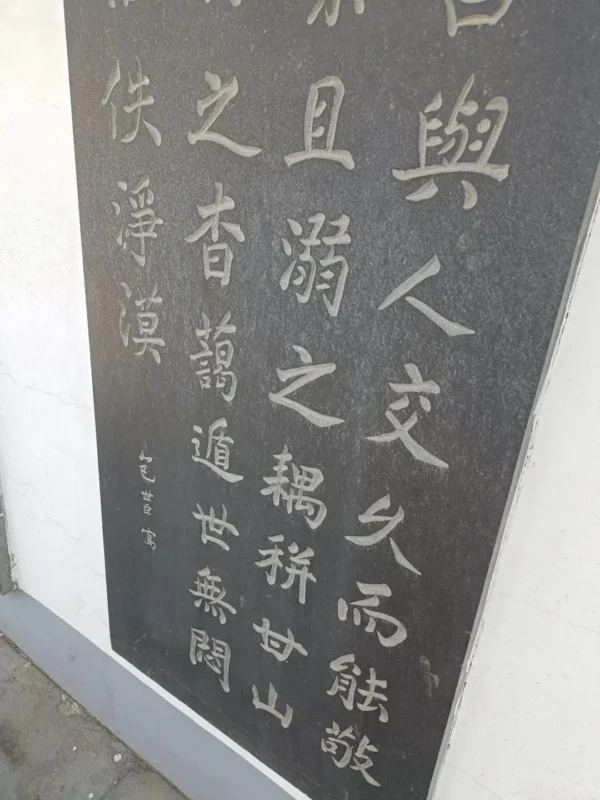 與人交久而能敬
且溺之耦耕甘山
之杳藹遁世無悶
佚淨漠
包世臣寫